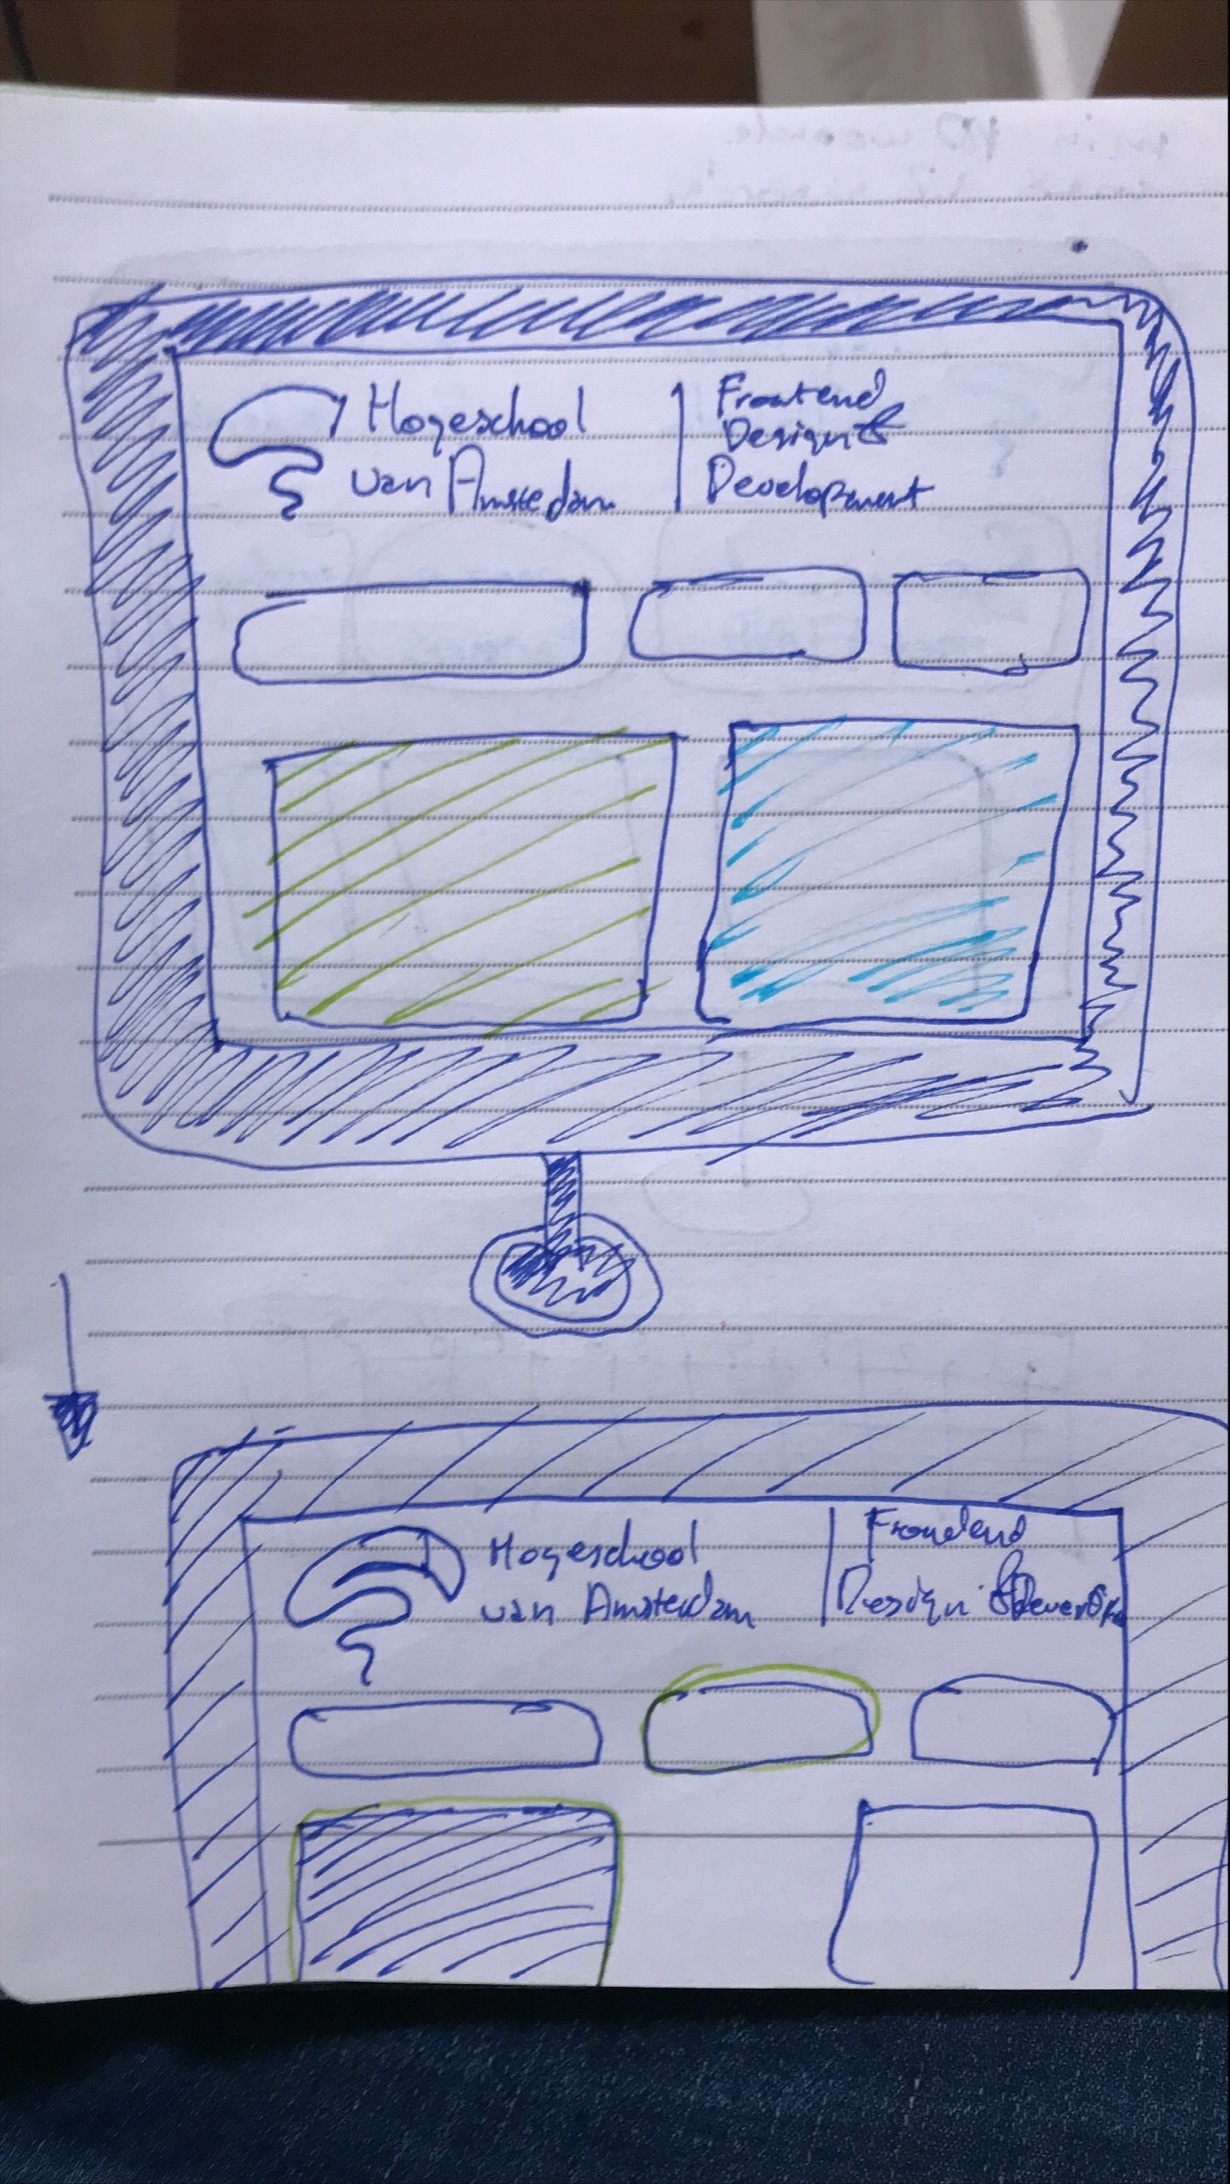 Hogeschool
van Amstedam
Frontend
Design &
Development
Hogeschool
van Amsterdam
Frondend
Design &